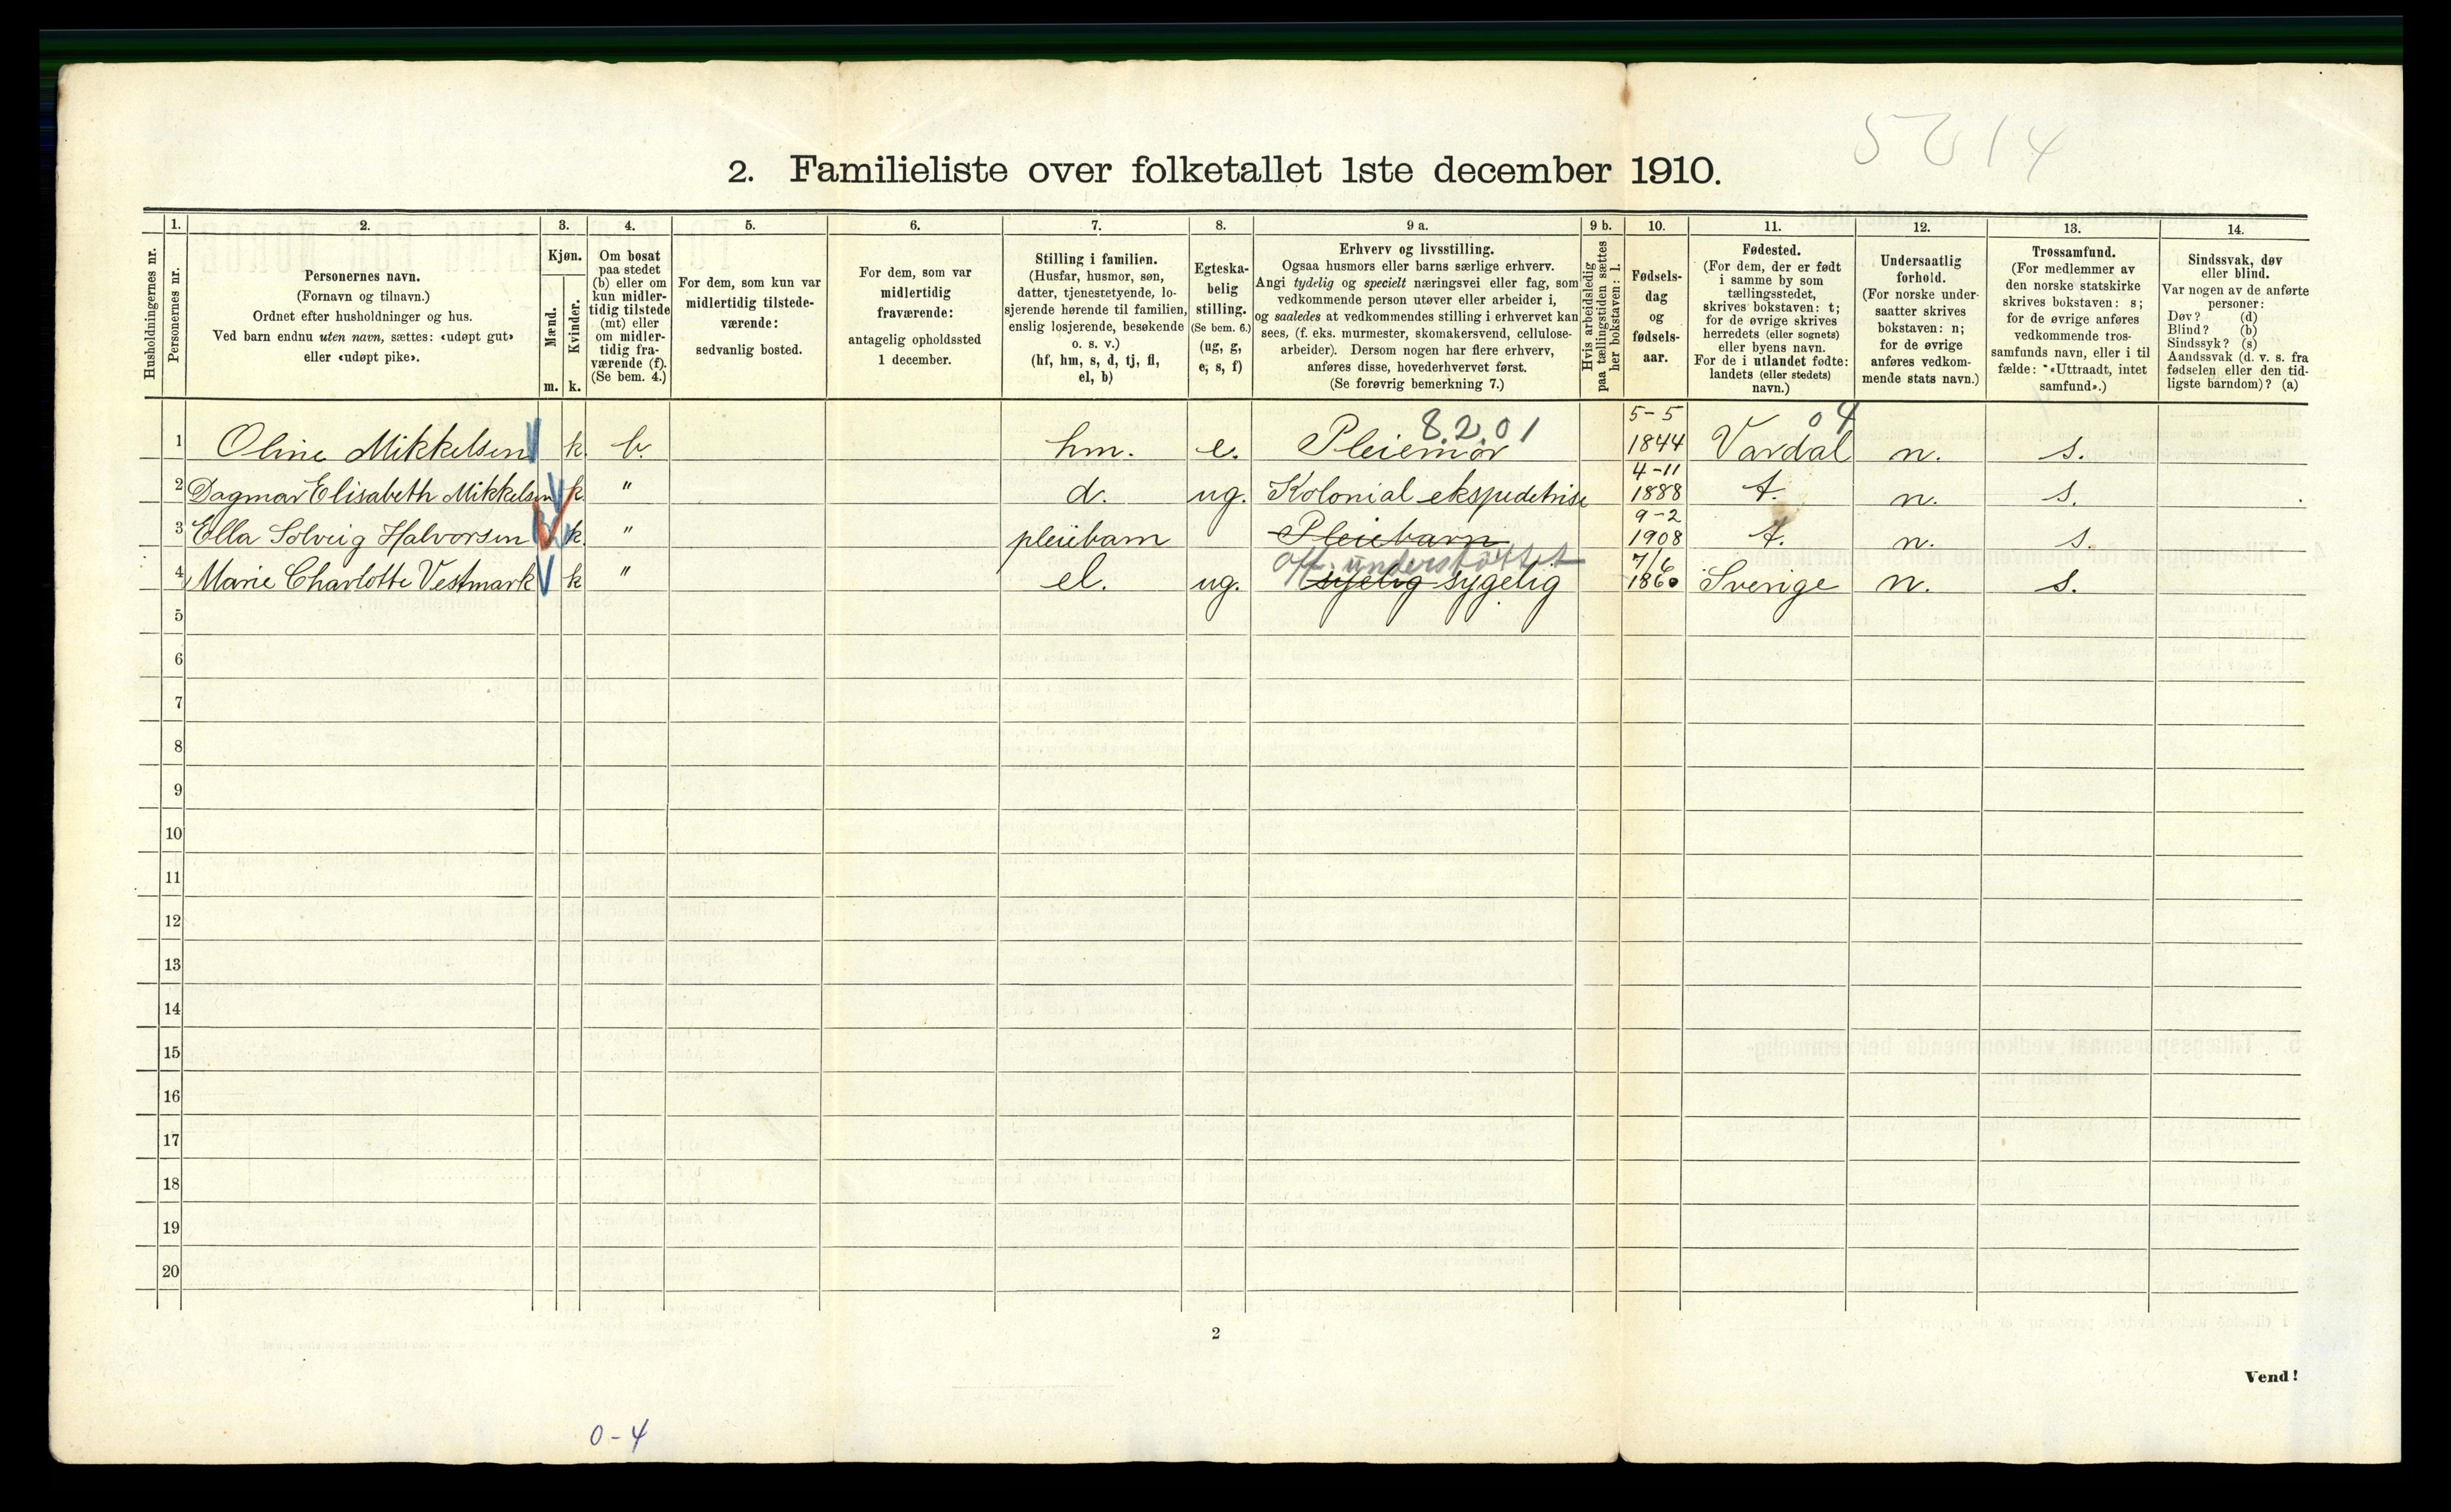 5014
2. Familieliste over folketallet 1ste december 1910.
1. 2. 3. 4. 5. 6. 7. 8. 9 a. 9 b. 10. 11. 12. 13. 14.
Husholdningernes nr.
Personernes nr.
Personernes navn.
(Fornavn og tilnavn.)
Ordnet efter husholdninger og hus.
Ved barn endnu uten navn, sættes: «udøpt gut»
eller «udøpt pike».
Kjøn.
Mænd.
m.
Kvinder.
k.
Om bosat
paa stedet
(b) eller om
kun midler-
tidig tilstede
(mt) eller
om midler-
tidig fra-
værende (f).
(Se bem. 4.)
For dem, som kun var
midlertidig tilstede-
værende:
sedvanlig bosted.
For dem, som var
midlertidig
fraværende:
antagelig opholdssted
1 december.
Stilling i familien.
(Husfar, husmor, søn,
datter, tjenestetyende, lo-
sjerende hørende til familien,
enslig losjerende, besøkende
o. s. v.)
(hf, hm, s, d, tj, fl,
el, b)
Egteska-
belig
stilling.
(Se bem. 6.)
(ug, g,
e, s, f)
Erhverv og livsstilling.
Ogsaa husmors eller barns særlige erhverv.
Angi tydelig og specielt næringsvei eller fag, som
vedkommende person utøver eller arbeider i,
og saaledes at vedkommendes stilling i erhvervet kan
sees, (f. eks. murmester, skomakersvend, cellulose-
arbeider). Dersom nogen har flere erhverv,
anføres disse, hovederhvervet først.
(Se forøvrig bemerkning 7.)
Hvis arbeidsledig
paa tællingstiden sættes
her bokstaven: l.
Fødsels-
dag
og
fødsels-
aar.
Fødested.
(For dem, der er født
i samme by som
tællingsstedet,
skrives bokstaven: t;
for de øvrige skrives
herredets (eller sognets)
eller byens navn.
For de i utlandet fødte:
landets (eller stedets)
navn.)
Undersaatlig
forhold.
(For norske under-
saatter skrives
bokstaven: n;
for de øvrige
anføres vedkom-
mende stats navn.)
Trossamfund.
(For medlemmer av
den norske statskirke
skrives bokstaven: s;
for de øvrige anføres
vedkommende tros-
samfunds navn, eller i til-
fælde: «Uttraadt, intet
samfund».)
Sindssvak, døv
eller blind.
Var nogen av de anførte
personer:
Døv? (d)
Blind? (b)
Sindssyk? (s)
Aandssvak (d. v. s. fra
fødselen eller den tid-
ligste barndom)? (a)
8.2.01 5-5 04
1 Oline Mikkelsen k. b. hm. e. Pleiemor 1844 Vardal n. s.
4-11
2 Dagmar Elisabeth Mikkelsen k. " d. ug. Kolonial ekspedetrise 1888 t. n. s.
9-2
3 Ella Solveig Halvorsen k. " pleiebarn Pleiebarn 1908 t. n. s.
Off. understöttet 7/6
4 Marie Charlotte Vestmark k " el. ug. sygelig sygelig 1860 Sverige n. s.
5
6
7
8
9
10
11
12
13
14
15
16
17
18
19
20
2
Vend!
0-4